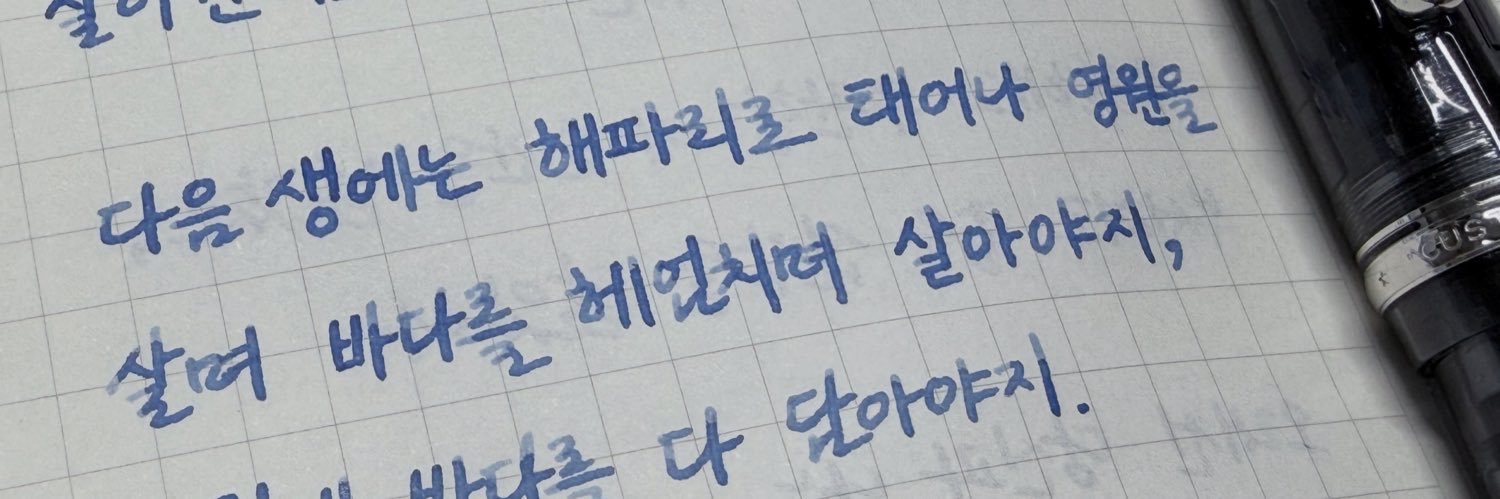 다음 생에는 해파리로 태어나 영원을
살며 바다를 헤엄치며 살아야지,
바다를 다 담아야지.